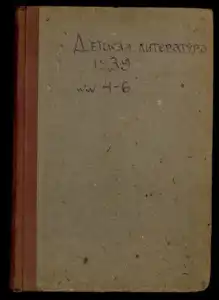 Детская литература
1939
№№ 4-6